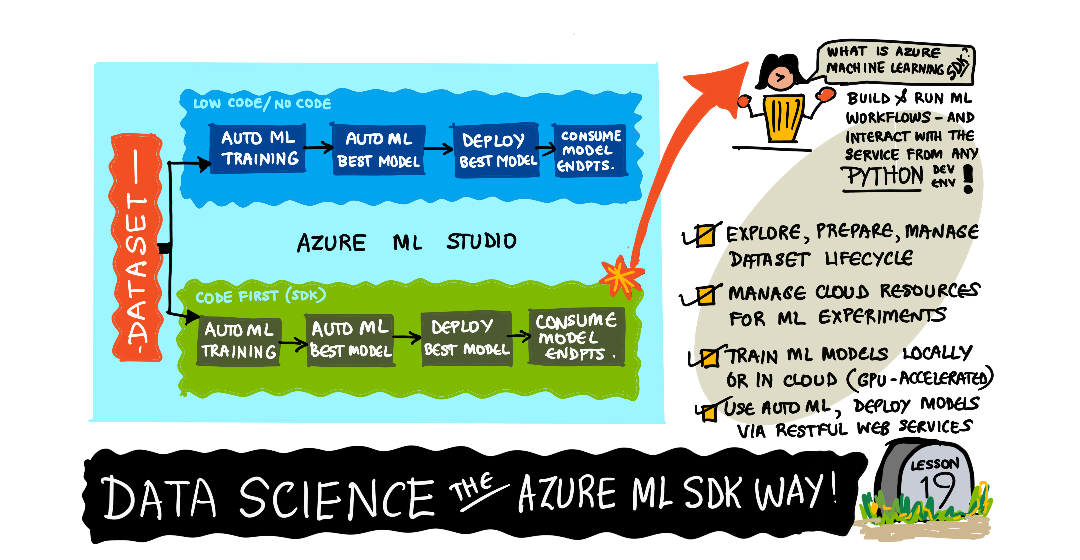 DATASET
LOW CODE/NO CODE
AUTO ML
TRAINING
AUTO ML
BEST MODEL
DEPLOY
BEST MODEL
CONSUME
MODEL
ENDPTS.
AZURE ML STUDIO
CODE FIRST (SDK)
AUTO ML
TRAINING
AUTO ML
BEST MODEL
DEPLOY
BEST MODEL
CONSUME
MODEL
ENDPTS.
WHAT IS AZURE
MACHINE LEARNING SDK?
BUILD & RUN ML
WORKFLOWS - AND
INTERACT WITH THE
SERVICE FROM ANY
PYTHON DEV ENV!
EXPLORE, PREPARE, MANAGE
DATASET LIFECYCLE
MANAGE CLOUD RESOURCES
FOR ML EXPERIMENTS
TRAIN ML MODELS LOCALLY
OR IN CLOUD (GPU-ACCELERATED)
USE AUTO ML, DEPLOY MODELS
VIA RESTFUL WEB SERVICES
DATA SCIENCE THE AZURE ML SDK WAY!
LESSON
19